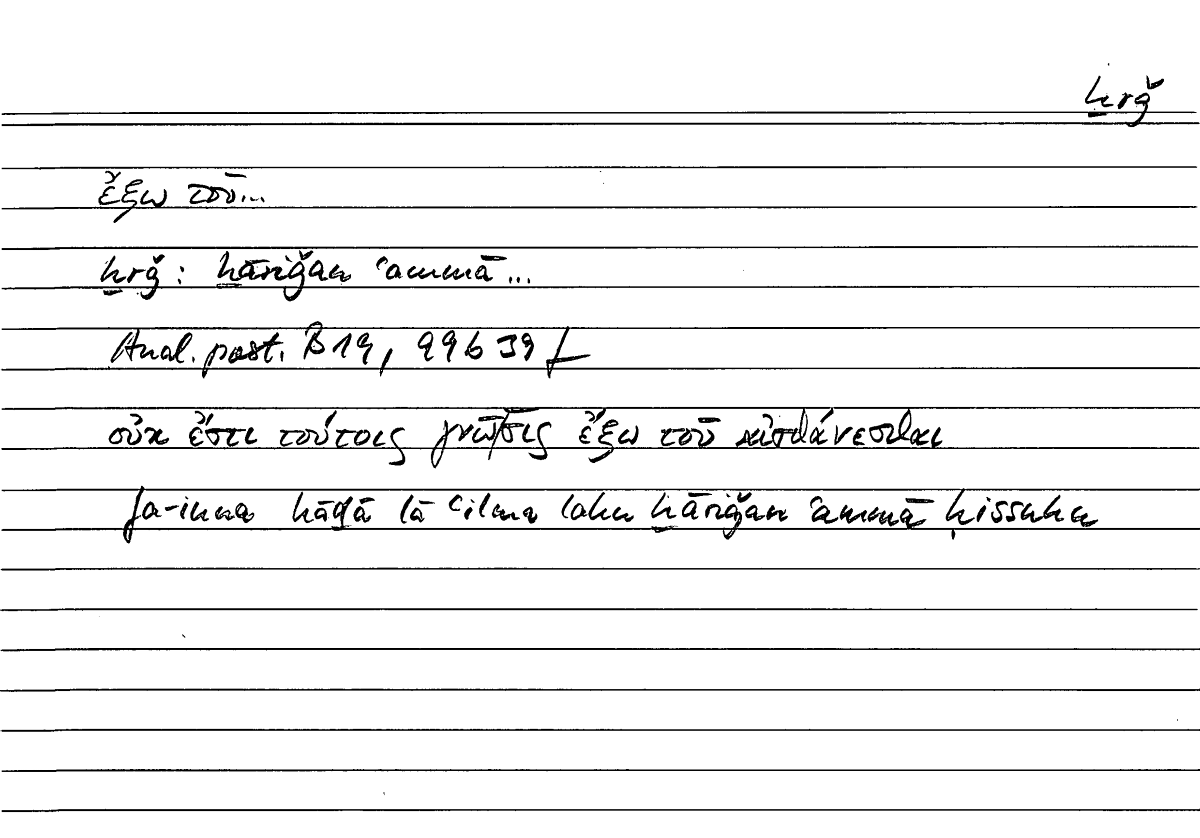 ḫrǧ
ἔξω τοῦ...
ḫrǧ: ḫāriǧan ʿammā...
Anal. post. B 19, 99b 39 f
οὐκ ἔστι τούτοις γνῶσις ἔξω τοῦ αἰσθάνεσθαι
fa-inna hāḏā lā ʿilma lahu ḫāriǧan ʿammā ḥissuhu